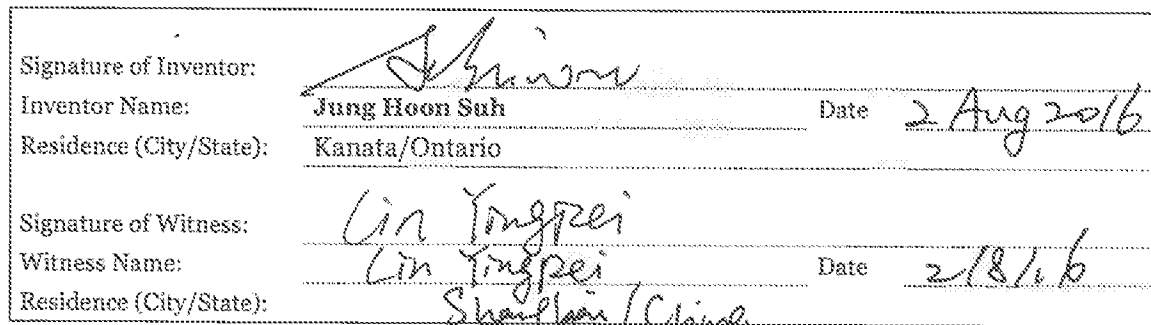 Signature of Inventor:
Inventor Name: Jung Hoon Suh Date 2 Aug 2016
Residence (City/State): Kanata/Ontario
Signature of Witness: Lin Yingpei
Witness Name: Lin Yingpei Date 2/8/16
Residence (City/State): Shanghai/China